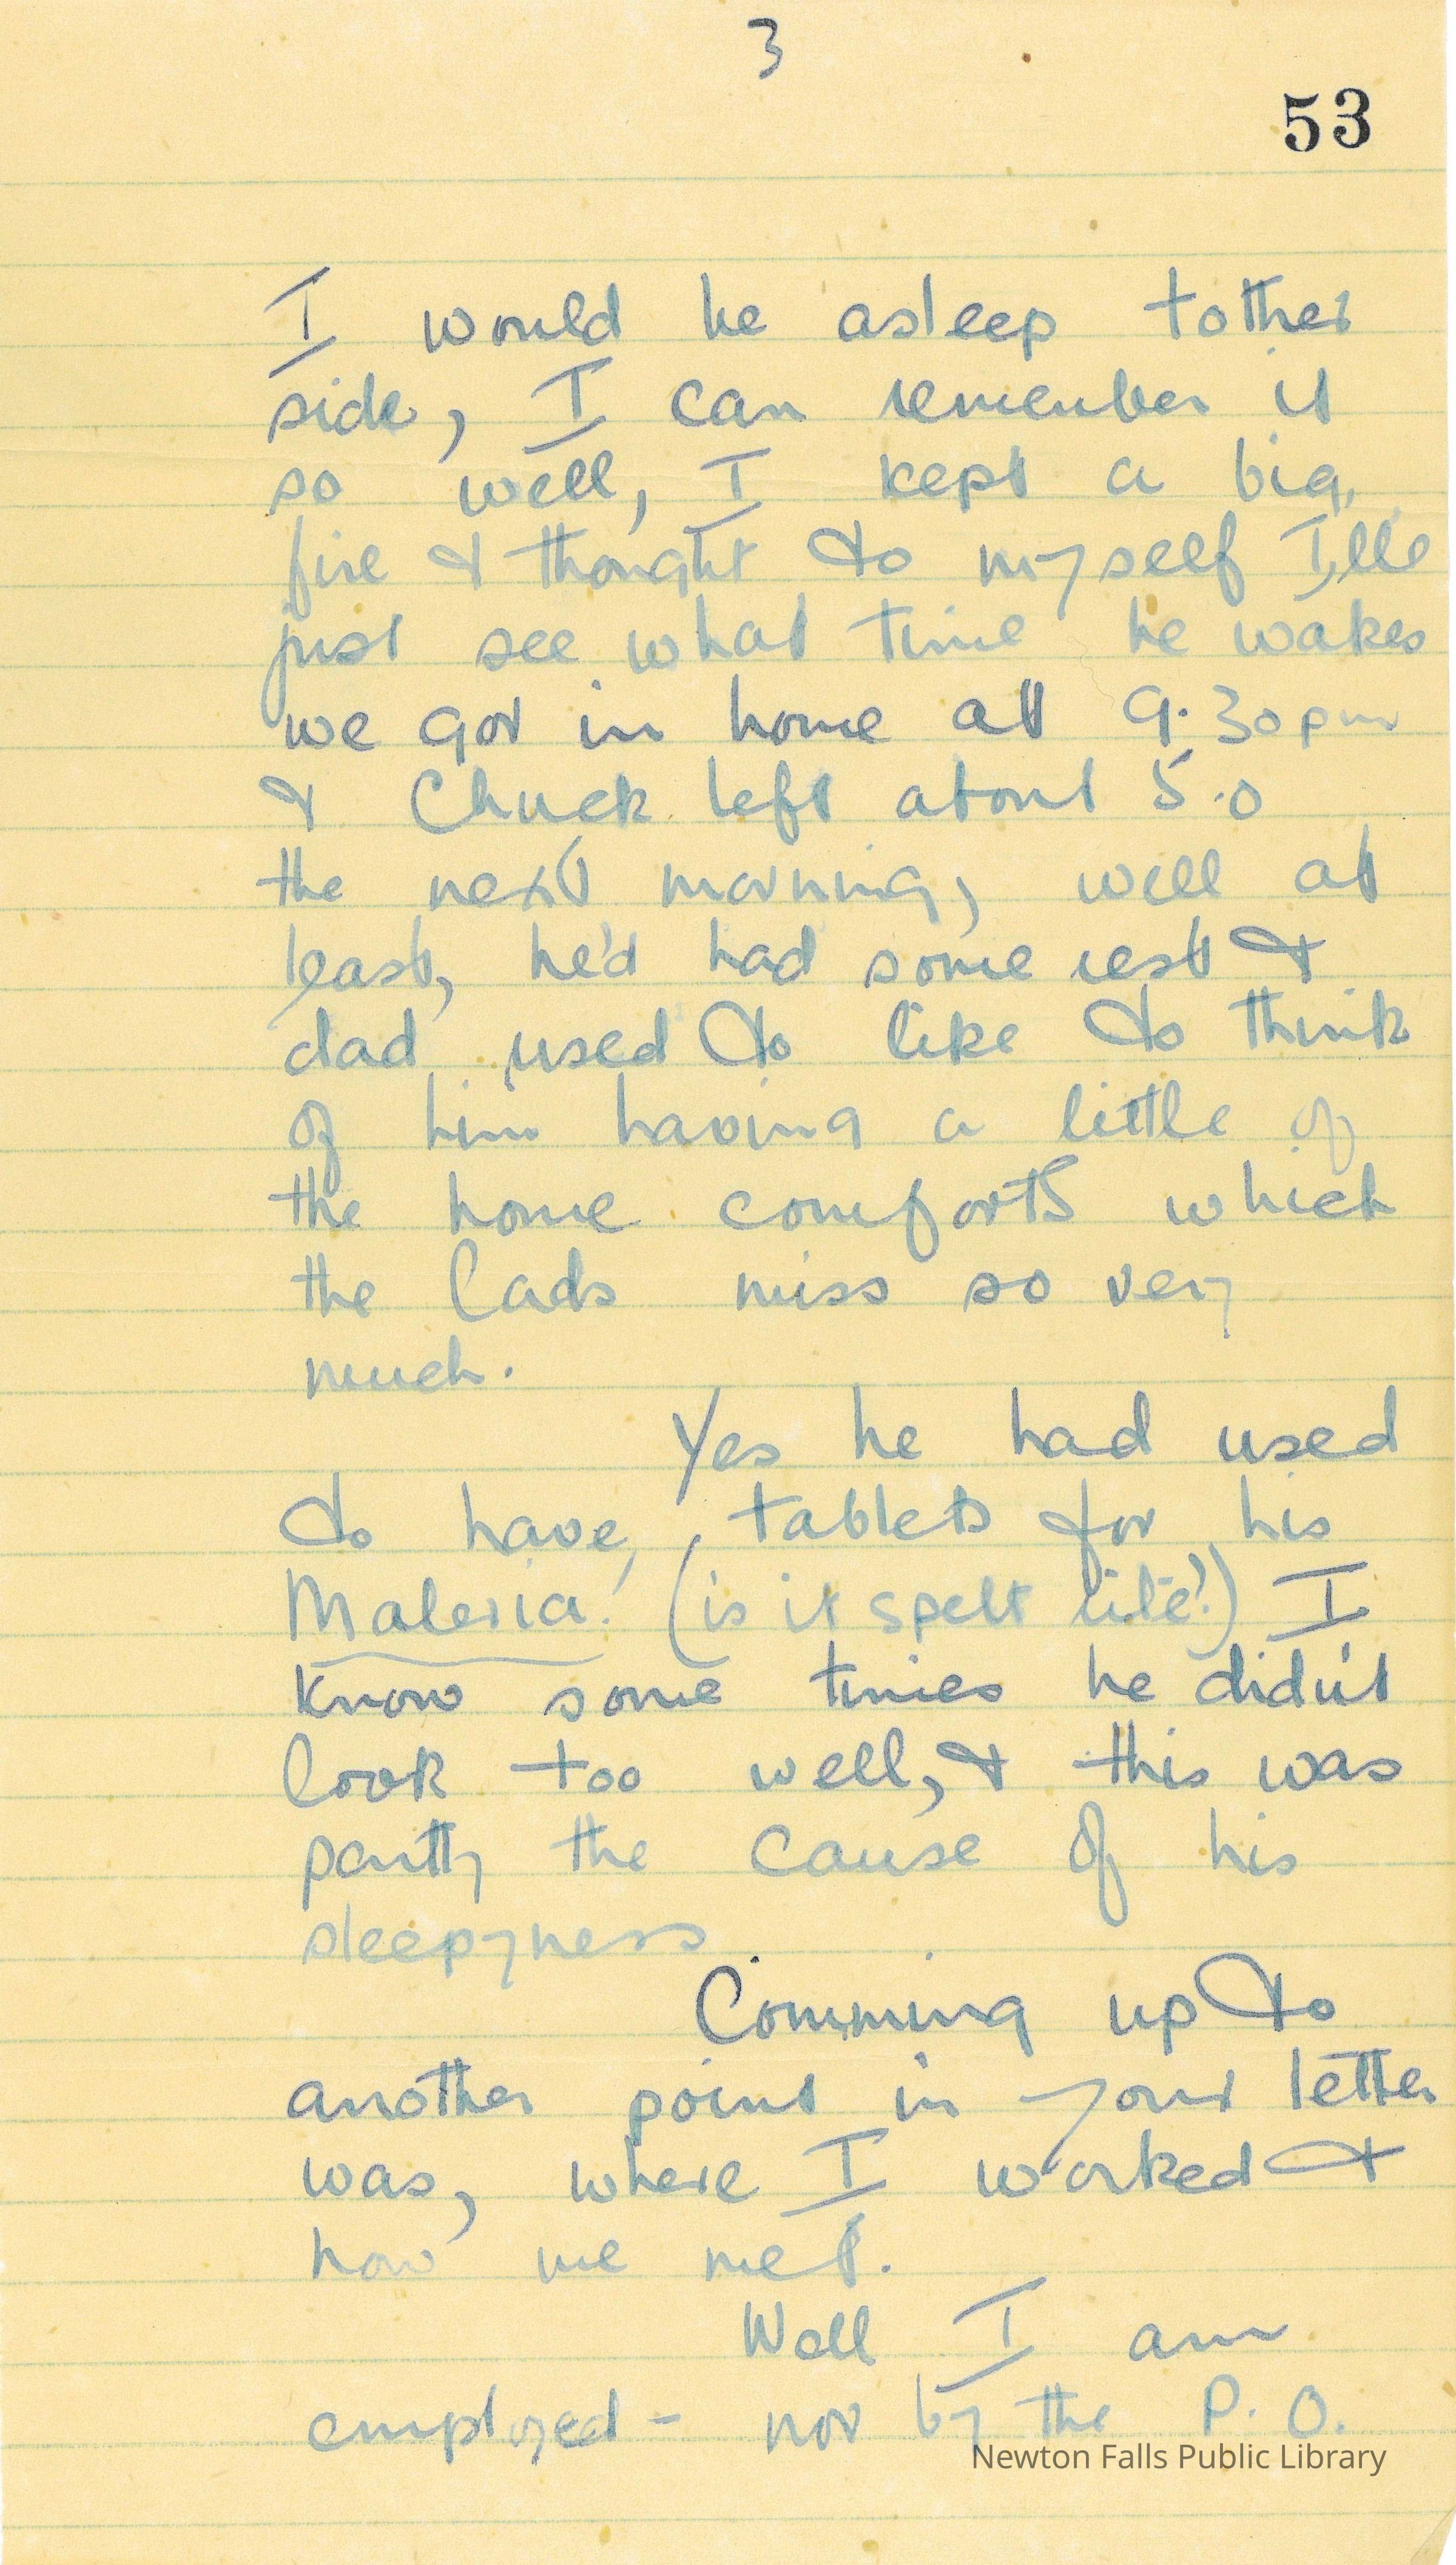 3
53
I would be asleep tother
side, I can remember it
so well, I kept a big
fire & thought to myself I,lle
just see what time he wakes
we got in home att 9.30 pm
& Chuck left about 5.0
the next morning, well at
least, he'd had some rest &
dad used to like to think
of him having a little of
the home comforts which
the lads miss so very
much.
Yes he had used
to have, tablets for his
Maleria! (is it spelt like!) I
know some times he did'nt
look too well, & this was
partly the cause of his
sleepyness.
Comming up to
another point in your letter
was, where I worked &
how we met.
Well I am
employed - not by the P. O.
Newton Falls Public Library